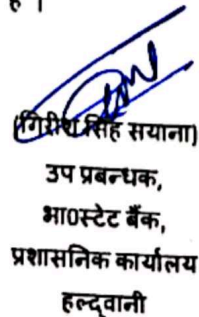 है ।
(गिरीश सिंह सयाना)
उप प्रबन्धक,
भा0स्टेट बैंक,
प्रशासनिक कार्यालय
हल्द्वानी